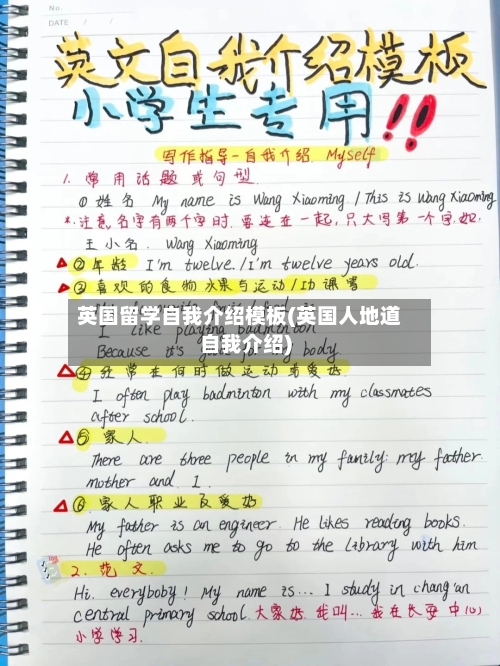 No.
DATE / /
英文自我介绍模板
小学生专用!!
写作指导-自我介绍. Myself
1. 常用话题或句型.
① 姓名 My name is Wang Xiaoming / This is Wang Xiaoming
*.注意名字有两个字时.要连在一起,只大写第一个字.如.
王小名. Wang Xiaoming
② 年龄 I'm twelve./I'm twelve years old.
③ 喜欢的食物水果与运动/功课
英国留学自我介绍模板(英国人地道
I like playing badminton
自我介绍)
Because it's body.
④ 经常在何时做运动或爱好
I often play badminton with my classmates
after school.
⑤ 家人.
There are three people in my family: my father.
mother and I.
⑥ 家人职业及爱好
My father is an engineer. He likes reading books.
He often asks me to go to the library with him
2. 范文.
Hi. everyboby! My name is... I study in chang'an
central primary school. 大家好.我叫... 我在长安中心
小学学习.